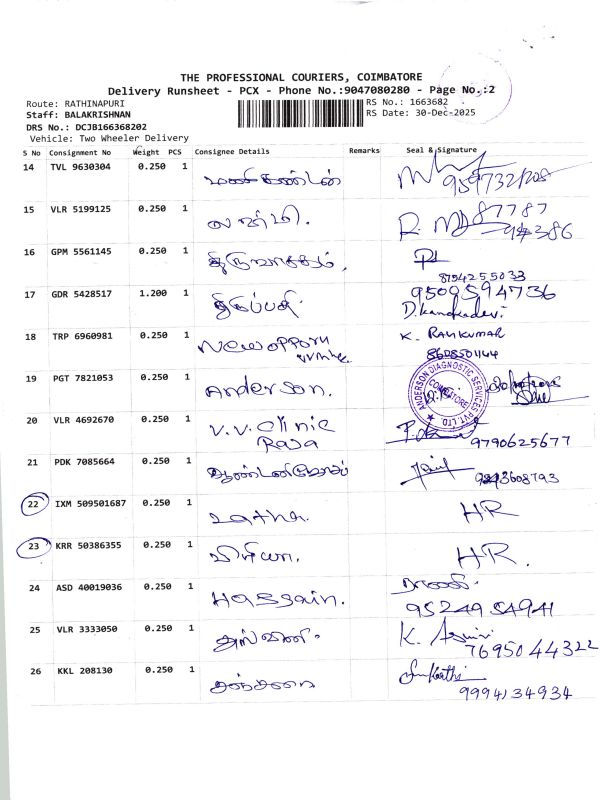 THE PROFESSIONAL COURIERS, COIMBATORE
Delivery Runsheet - PCX - Phone No.:9047080280 - Page No.:2
Route: RATHINAPURI
RS No.: 1663682
Staff: BALAKRISHNAN
RS Date: 30-Dec-2025
DRS No.: DCJB166368202
Vehicle: Two Wheeler Delivery
S No Consignment No Weight PCS Consignee Details Remarks Seal & Signature
14 TVL 9630304 0.250 1 மணிகண்டன்
15 VLR 5199125 0.250 1 லஷ்மி. 87787
16 GPM 5561145 0.250 1
8754255033
17 GDR 5428517 1.200 1 திருப்பதி. 9500594736
D.kanchadevi
18 TRP 6960981 0.250 1 New opporu K. RAVIKUMAR
8608501164
19 PGT 7821053 0.250 1 Anderson. ANDERSON DIAGNOSTIC SERVICES PVT. LTD. COIMBATORE
20 VLR 4692670 0.250 1 V.V. Clinic
Raja 9790625677
21 PDK 7085664 0.250 1
22 IXM 509501687 0.250 1 Latha. HR
23 KRR 50386355 0.250 1 பிரியா. HR.
24 ASD 40019036 0.250 1 Hassain.
9524954941
25 VLR 3333050 0.250 1 அஸ்வினி. K. Aswini
7695044322
26 KKL 208130 0.250 1
9994134934